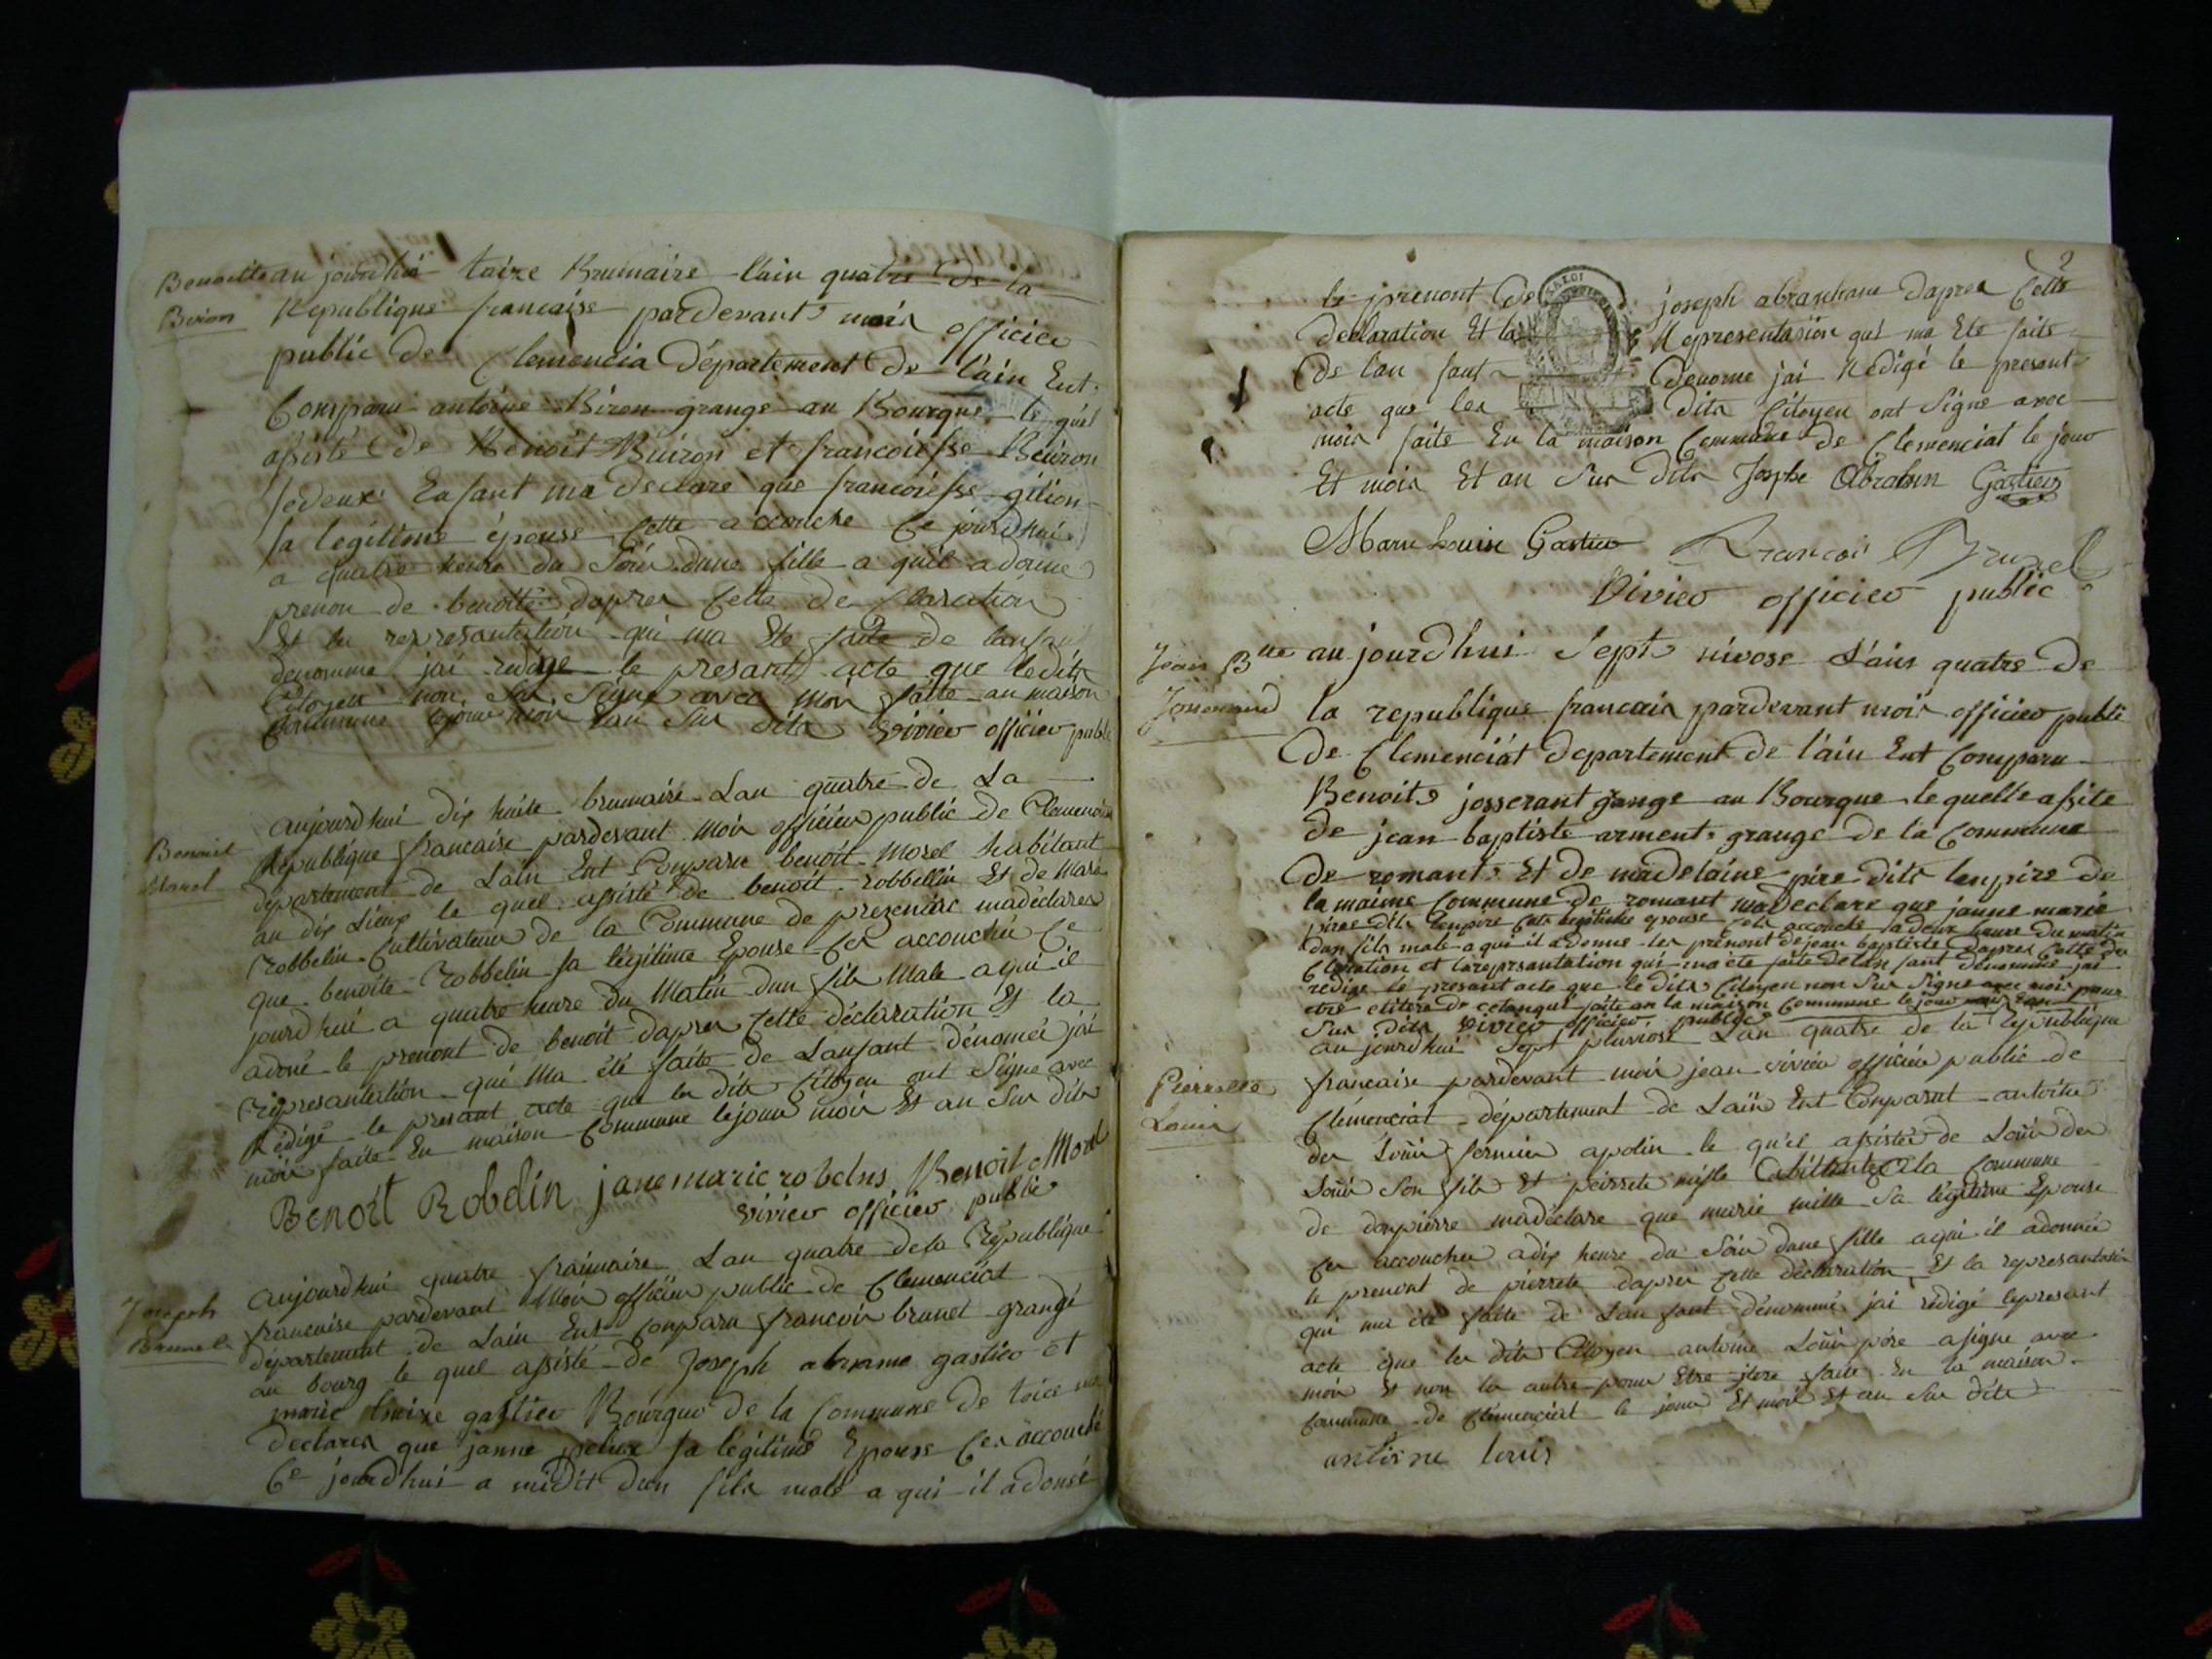 Benoitte
Biron
au jourdhui taize Brumaire l'ain quatre de la
Republique francaise pardevant mois officier
public de Clemencia Département de l'ain Ent
Comparu antoine Biron grange au Bourque le quel
asisté de Benoit Buiron et francoisse Beuiron
sedeux Enfant ma declare que francoisse gilion
sa legitime épouse Cette accouché Ce jourdhui
a quatre heure du Soir dune fille a quil a donne
prenon de benoitte dapres Cette déClaration
Et la represantation qui ma Ete faite de lanfant
denomme jai redige le presant acte que ledits
Citoyen non Sus Signe avec mois faitte au maison
Commune lejour mois lan Sur dits Vivier officier public
Benoit
Morel
aujourdhui dix huite brumaire Lan quatre de La
Republique francaise pardevant Mois officier public de Clemencia
département de Lain Ent Comparu benoit Morel habitant
au dix Lieux le quel assisté de benoit robbellin Et de Marie
robbelin Cultivateur de la Commune de prezeniac madéclarer
que benoite robbelin sa légitime Epouse Ces accouchée Ce
jourd'hui a quatre heure du Matin dun fils Male aqui il
adoné le prenont de benoit dapres Cette déclaration Et la
représantation qui Ma été faite de Lanfant dénomée j'ai
Rédigé le presant acte que les dits Citoyen ont Signe avec
mois faite En maison Commune lejour mois Et an Sur dits
Benoit Robelin jane marie robelns Benoit Morel
vivier officier public
Joseph
Brunel
aujourdhui quatre fraimaire Lan quatre dela République
francaise pardevant Mois officier public de Clemenciat
département de Lain Ent Conparu francois brunel grangé
au bourg le quel assisté de Joseph abrame gastier et
marie louize gastier Bourgue de la Commune de toice ma
declarer que janne pelux sa légitime Epouse Ces accouché
Ce jourd'hui a midit dun fils male a qui il a donné
2
le prenont de joseph abraschame dapres Cette
declaration Et la Representasion qui ma Ete faite
De lan fant Denome jai Redigé le presant
acte que les dits Citoyen ont Signe avec
mois faite En la maison Commune de Clemenciat le jour
Et mois Et an Sus dits Josphe Abraham Gastier
Marie Louise Gastier Francois Brunel
Vivier officier public
Jean Btte
Josserand
au jourdhui Sept nivose L'ain quatre De
la republique francais pardevant mois officier publi
De Clemenciat departement de l'ain Ent Comparu
Benoits josserant gange au Bourque le quelle assite
de jean baptiste arment grange de la Commune
De romant Et de madelaine pire dits lenpire de
la maime Commune de romant madeclare que janne marie
pire dits lenpire Cete legitime epouse Cete accouché a deux heure du matin
dun fils male a qui il a donne les prenont de jean baptiste dapres Cette dé
Claration et lareprsantation qui ma ete faite de lan fant dénommé jai
redige le presant acte que le dits Citoyen non Sus Signe avec mois pour
etre etitere de cetanqui faite an la maison Commune le jour mois Ean
Sus dits vivier officier public
Pierrette
Louis
au jourdhui Sept pluviose Lan quatre de la République
francaise pardevant mois jean vivier officier public de
Clémenciat département de Lain Ent Comparut antoine
des Louis fermier apolin le qu'el assistée de Louis des
Louis Son fils Et peirrete mille Cabittante de la Commune
de donpierre madéclare que marie mille Sa légitime Epouse
Ces accouchée adix heure du Soir dune fille aqui il adonnée
le prenont de pierrete dapres Cette déclaration Et la represantation
qui ma été faite de Lan fant dénommé jai rédigé lepresant
acte que les dits Citoyen antoine Louis pére asigne avec
mois Et non les autre pour Etre itere faite En la maison
Commune de Clémenciat le jour Et mois Et an Sus dits
antoine louis